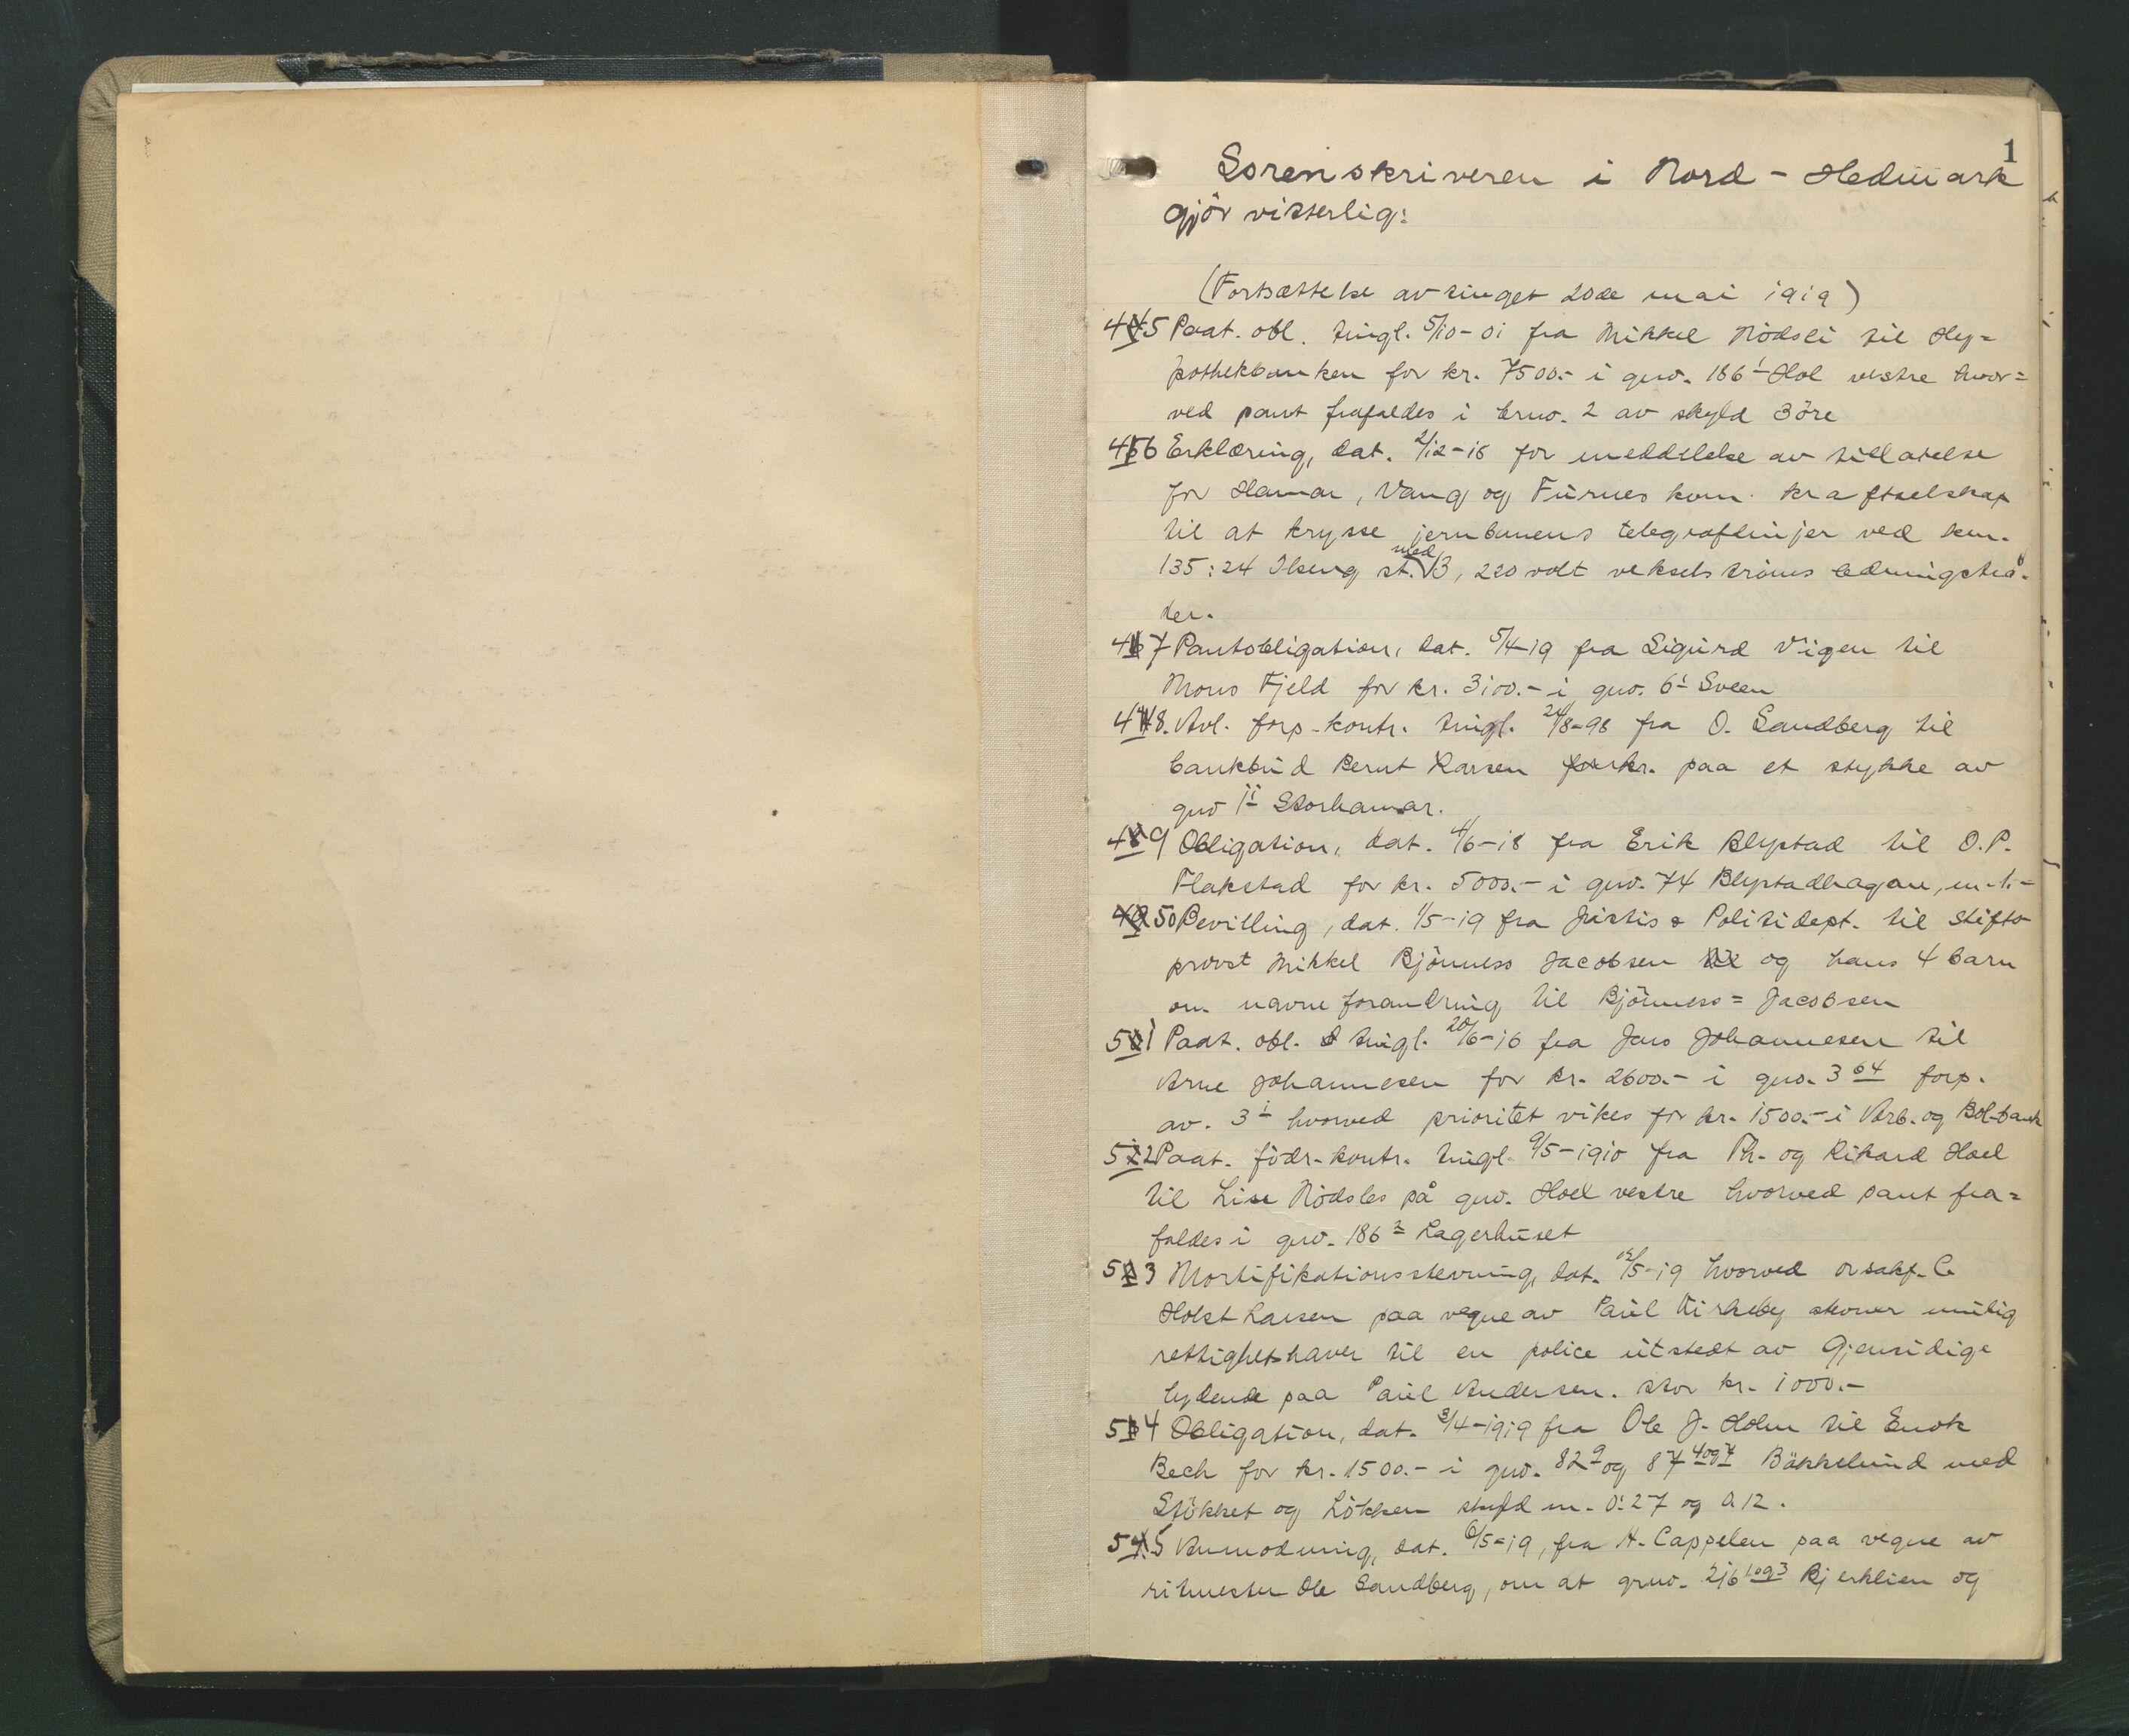 1
Sorenskriveren i Nord-Hedmark
gjör vitterlig:
(Fortsættelse av tinget 20de mai 1919)
45 Paat. obl. tingl. 5/10-01 fra Mikkel Nödsli til Hy=
pothekbanken for kr. 7500.- i gno. 186 1 Hol vestre hvor=
ved pant frafaldes i bruo. 2 av skyld 3 öre
46 Erklæring, dat. 2/12-18 for meddelelse av tillatelse
for Hamar, Vang og Furnes kom. kraftselskap
til at krysse jernbanens telegraflinjer ved km.
135:24 Ilseng st. med 3, 220 volt vekselströms ledningstrå-
der.
47 Pantobligation, dat. 5/4-19 fra Sigurd Vigen til
Mons Fjeld for kr. 3100.- i gno. 6 1 Sveen
48. Avl. forp-kontr. tingl. 24/8-98 fra O. Sandberg til
bankbud Bernt Larsen for kr. paa et stykke av
gno 1 1 Storhamar.
49 Obligation, dat. 4/6-18 fra Erik Blystad til O.P.
Flakstad for kr. 5000.- i gno. 74 Blystadhagan, m.t.-
50 Bevilling, dat. 1/5-19 fra Justis & Politidept. til Stifts
provst Mikkel Bjönness Jacobsen til og hans 4 barn
om navneforandring til Bjönness=Jacobsen
51 Paat. obl. tingl. 20/6-16 fra Jens Johannesen til
Arne Johannesen for kr. 2600.- i gno. 3 64 forp.
av. 3 1 hvorved prioritet vikes for kr. 1500.- i Arb. og Bol-bank
52 Paat. födr-kontr. tingl. 9/5-1910 fra Th. og Rikard Hoel
til Lise Nödsles på gno. Hoel vestre hvorved pant fra=
faldes i gno. 186 2 Lagerhuset
53 Mortifikationsstevning, dat. 12/5-19 hvorved orsakf. C
Holst Larsen paa vegne av Paul Kirkeby stevner mulig
rettighetshaver til en police utstedt av Gjensidige
lydende paa Paul Andersen. stor kr. 1000.-
54 Obligation, dat. 3/4-1919 fra Ole J. Holm til Enok
Bech for kr. 1500.- i gno. 82 9 og 87 4 og 7 Bäkkelund med
Stökket og Lökken skyld m. 0:27 og 0.12.
55 Anmodning, dat. 6/5-19, fra H. Cappelen paa vegne av
ritmester Ole Sandberg, om at gruo. 216 1 og 3 Bjerklien og